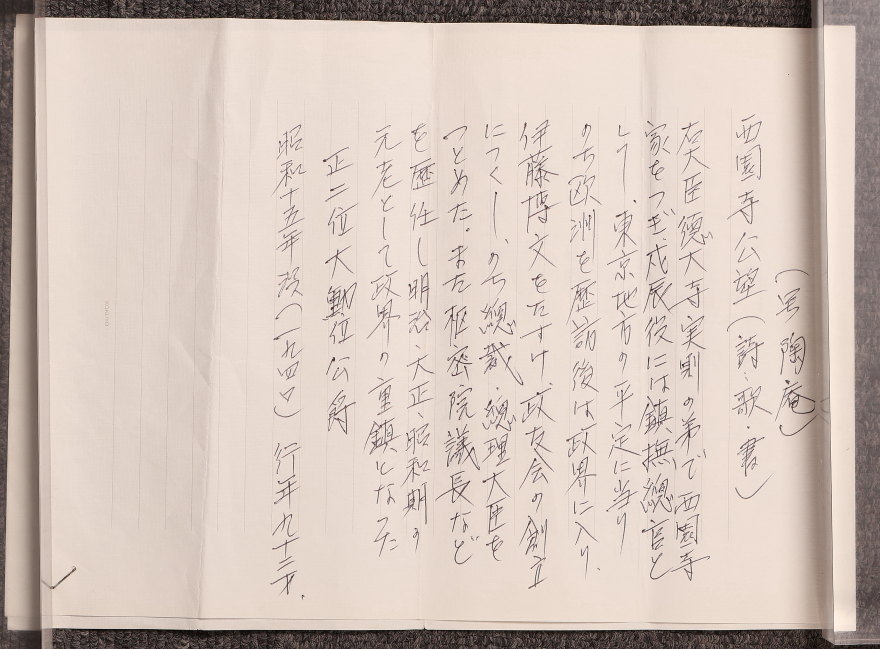 (号 陶庵)
西園寺公望(詩・歌・書)
右大臣徳大寺実則の弟で西園寺
家をつぎ戊辰役には鎮撫総官と
して、東京地方の平定に当り
のち欧洲を歴訪後は政界に入り、
伊藤博文をたすけ、政友会の創立
につくし、のち總裁・總理大臣を
つとめた。また枢密院議長など
を歴任し明治・大正・昭和期の
元老として政界の重鎮となった
正二位大勲位公爵
昭和十五年歿(一九四〇) 行年九十二才、